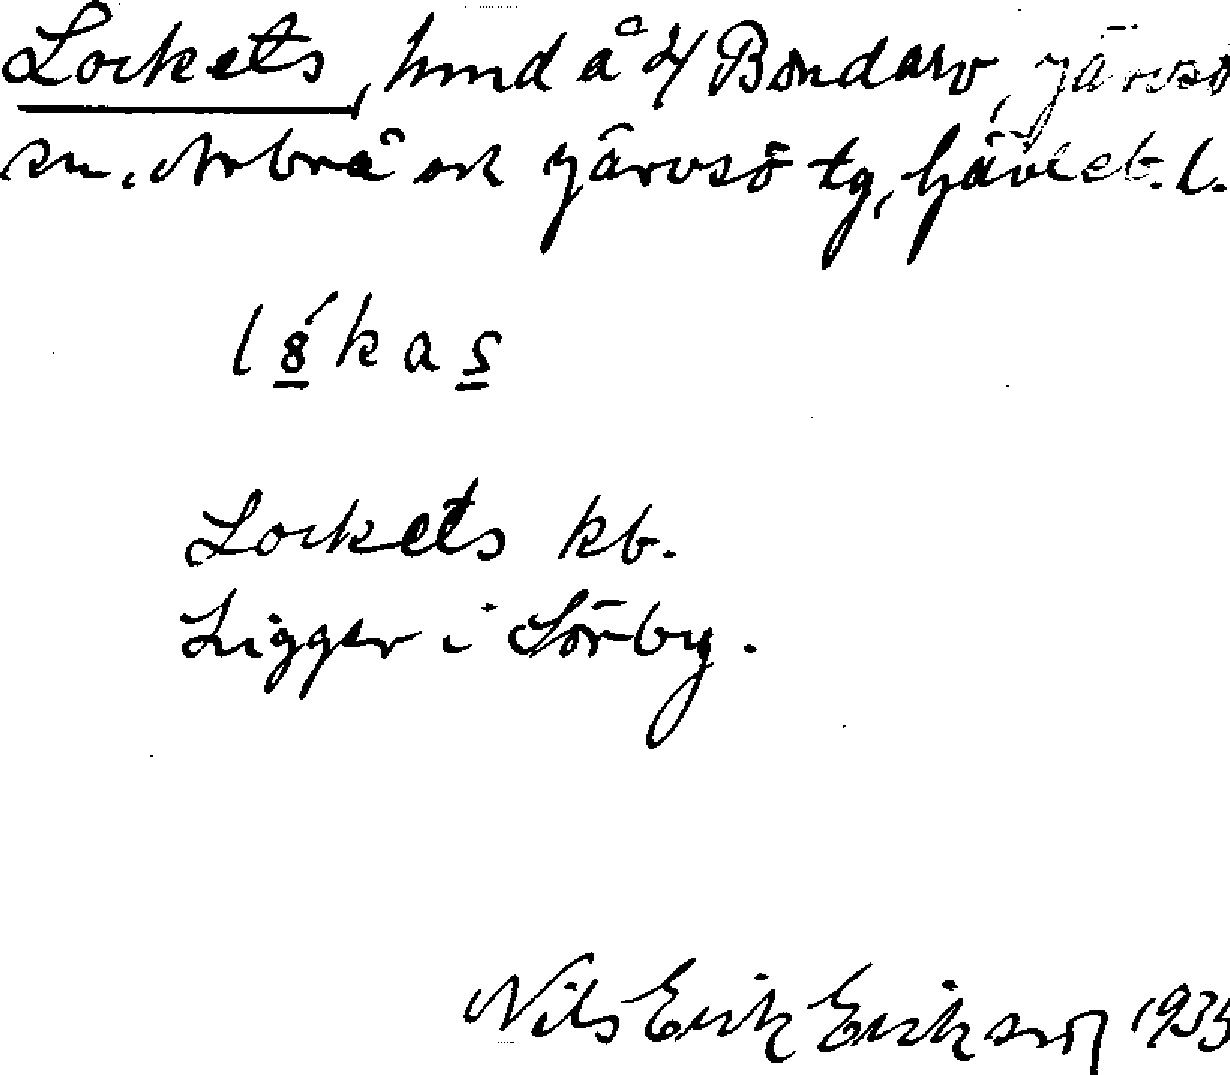 Lockets, hmd å 4 Bondarv, Järvsö
sn. Arbrå och Järvsö tg, Gävleb. l.
lȣ́kas
Lockets kb.
Ligger i Sörby.
Nils Erik Eriksson 1933